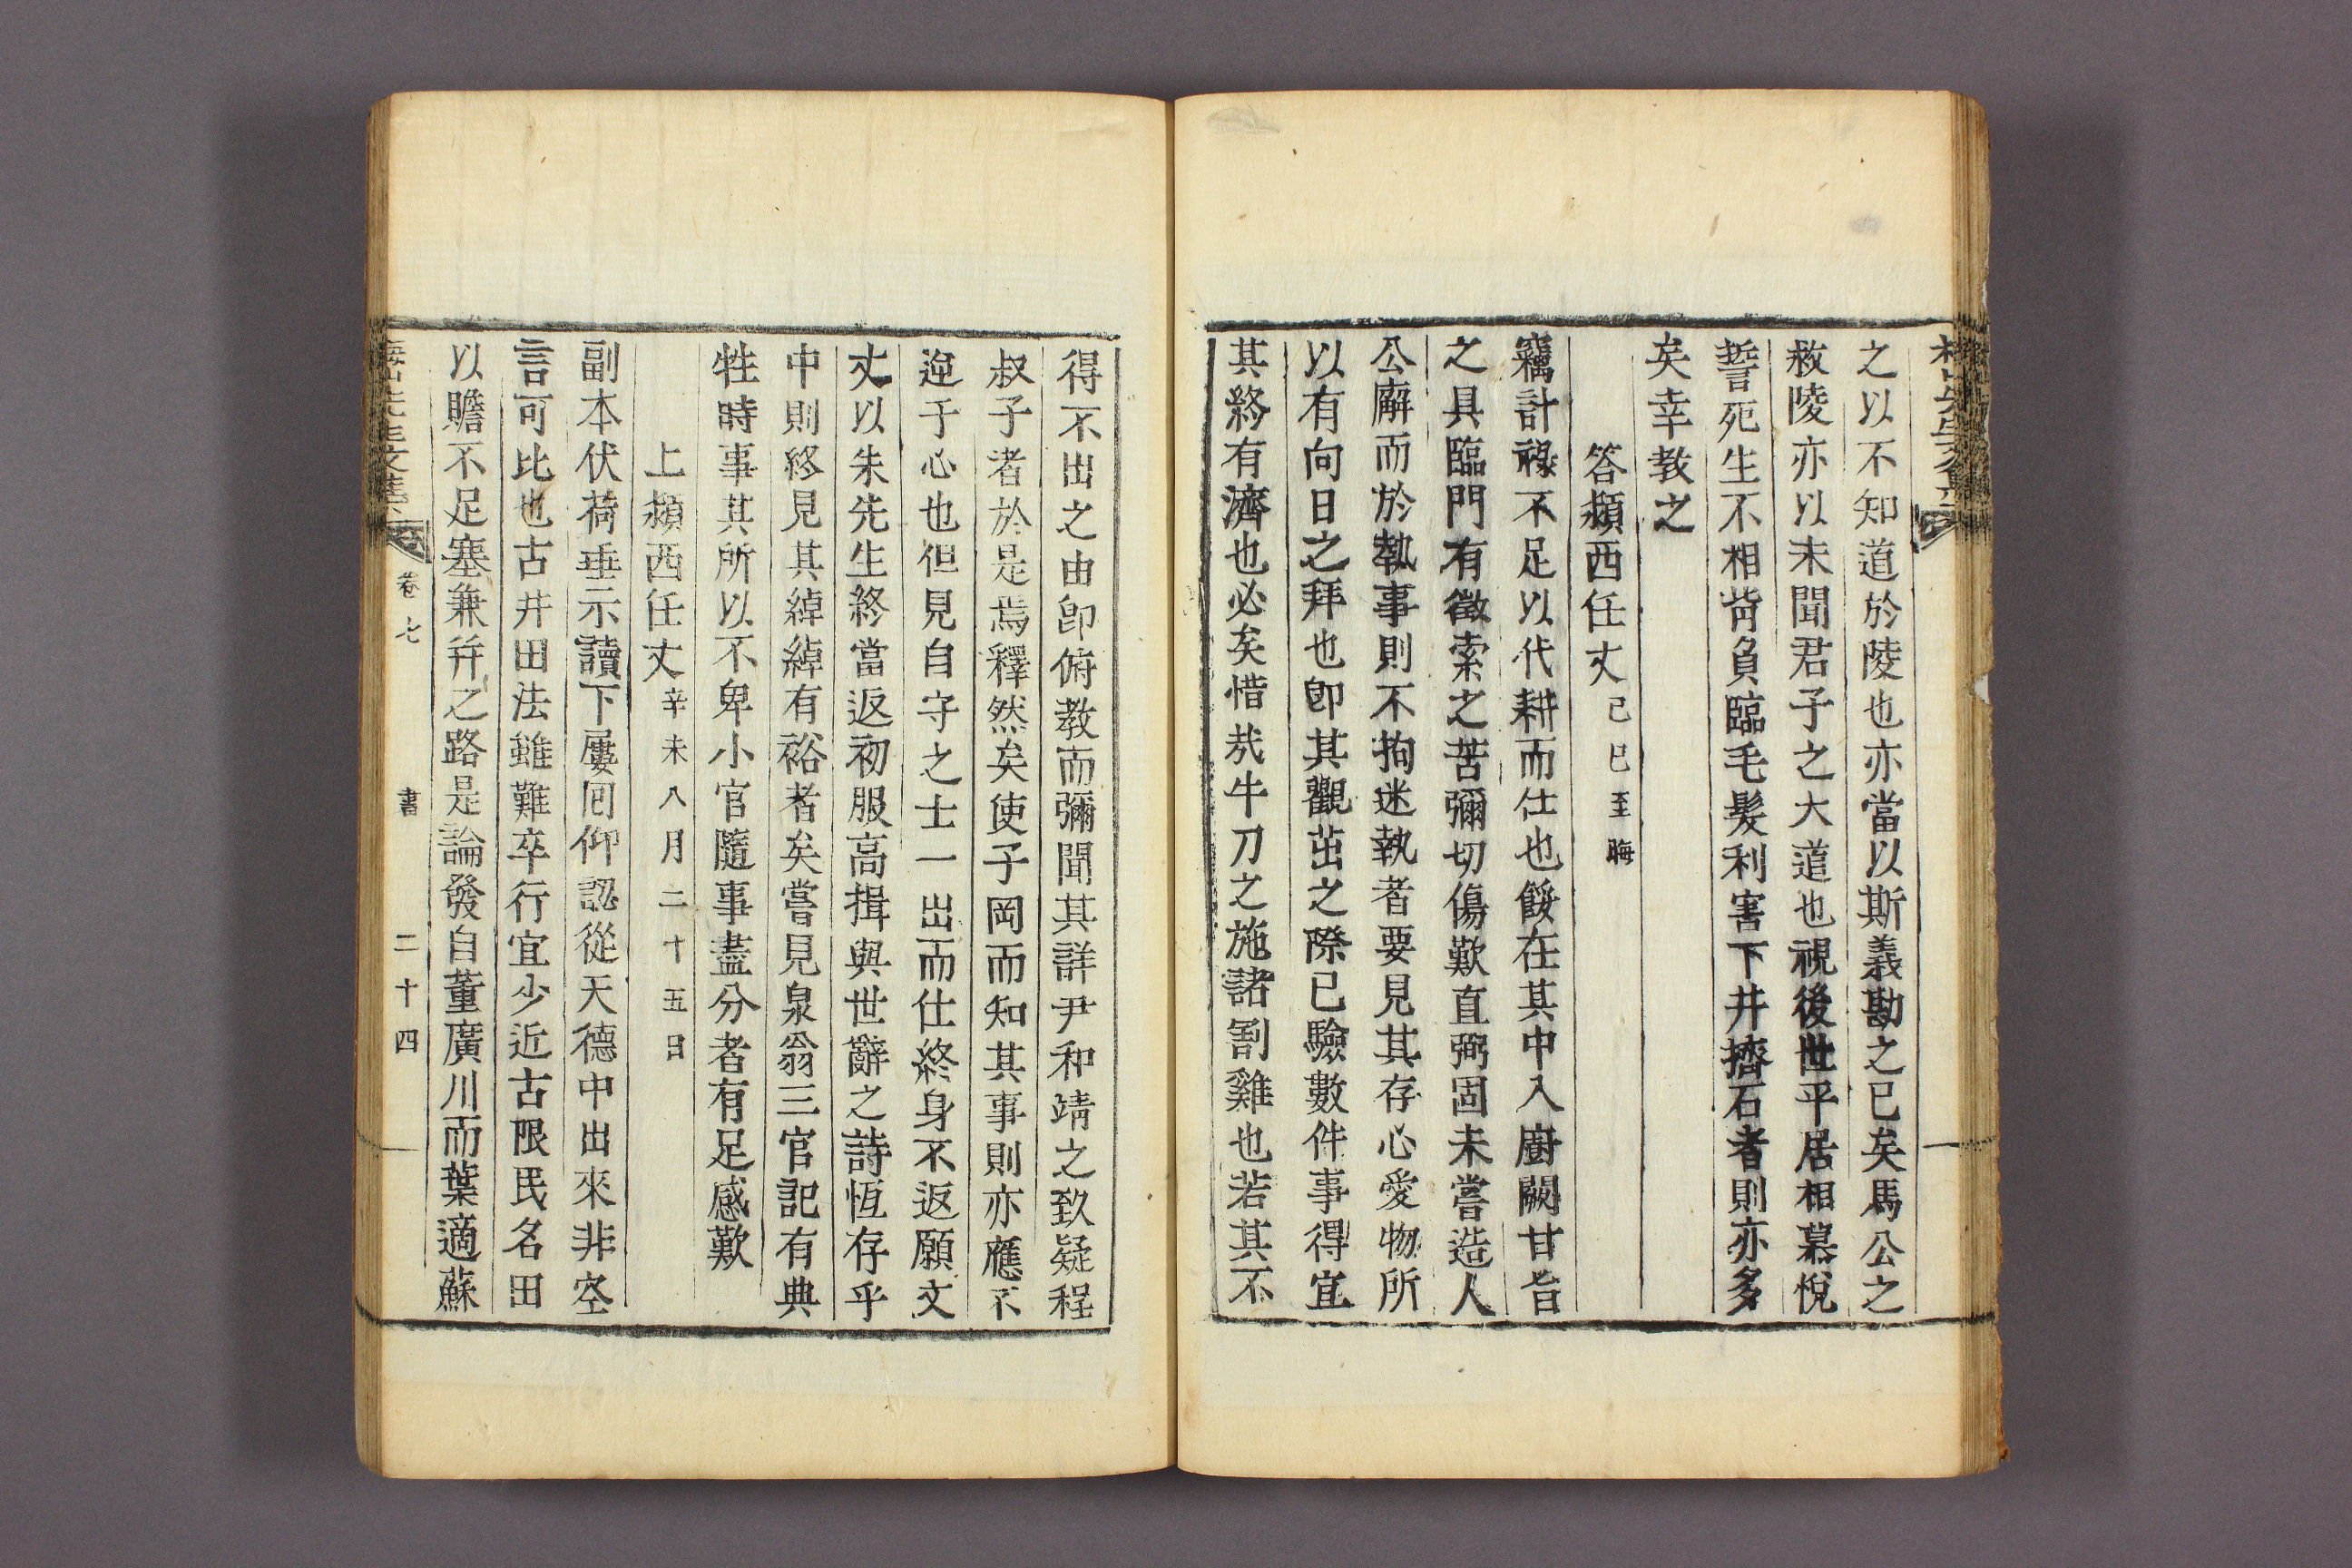 之以不知道於陵也亦當以斯義勘之已矣馬公之
救陵亦以未聞君子之大道也視後世平居相慕悅
誓死生不相背負臨毛髮利害下井擠石者則亦多
矣幸教之
答潁西任丈己巳至晦
竊計祿不足以代耕而仕也餒在其中入廚闕甘旨
之具臨門有徵索之苦彌切傷歎直弼固未嘗造人
公廨而於執事則不拘迷執者要見其存心愛物所
以有向日之拜也卽其觀茁之際已驗數件事得宜
其終有濟也必矣惜哉牛刀之施諸割雞也若其不
得不出之由卽俯教而彌聞其詳尹和靖之致疑程
叔子者於是焉釋然矣使子岡而知其事則亦應不
逆于心也但見自守之士一出而仕終身不返願文
丈以朱先生終當返初服高揖與世辭之詩恆存乎
中則終見其綽綽有裕者矣嘗見泉翁三官記有典
牲時事其所以不卑小官隨事盡分者有足感歎
上潁西任丈辛未八月二十五日
副本伏荷垂示讀下屢回仰認從天德中出來非空
言可比也古井田法雖難卒行宜少近古限民名田
以贍不足塞兼并之路是論發自董廣川而葉適蘇
梅山先生文集 卷七 書 二十四